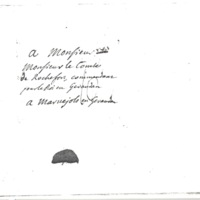 a Monsieur
Monsieur le Comte
de Rochefort, commandant
pour le Roi en Gevaudan
a Marvejols en Gevaudan